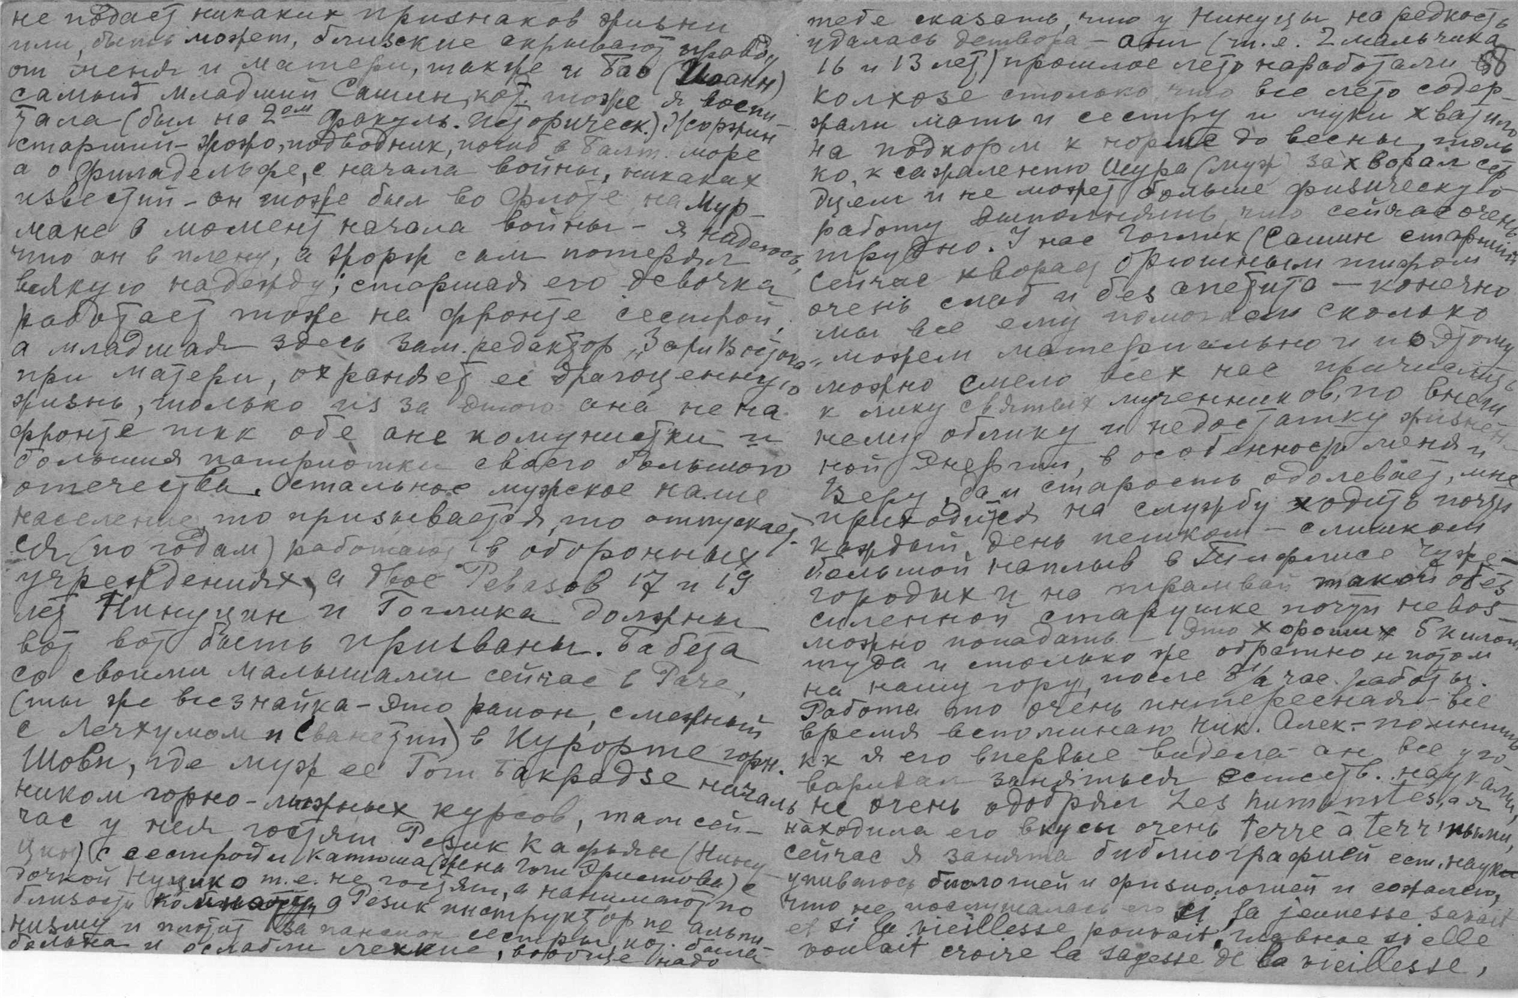 не подаёт никаких признаков жизни
или, быть может, близкие скрывают правду
от меня и матери, также и Бао (Иоанн)
самый младший Сашин, кот. тоже я воспи-
тала (был на 2ом факуль. историческ.) Жоржин
старший - Жожо, подводник, погиб в Балт. море
а о Филадельфе, с начала войны, никаких
известий - он тоже был во флоте на Мур-
мане в момент начала войны - я надеюсь,
что он в плену, а Жорж сам потерял
всякую надежду; старшая его девочка
работает тоже на фронте сестрой,
а младшая здесь зам. редактор „Заря Востока"
при матери, охраняет её драгоценную
жизнь, только из за этого она не на
фронте ткк обе оне комунистки и
большия патриотки своего большого
отечества. Остальное мужское наше
население, то призывается, то отпускает-
ся (по годам) работают в оборонных
учреждениях, а двое Ревазов 17 и 19
лет Нинуцин и Гоглика должны
вот вот быть призваны. Бабета
со своими малышами сейчас в Раче,
(ты же всезнайка - это район, смежный
с Лечхумом и Сванетии) в Курорте горн.
Шови, где муж ее Гоги Бакрадзе началь
ником горно-лыжных курсов, там сей-
час у нея гостят Резик Кафьян (Нину
цин) с сестрой и Катюша (жена Гоги Эристова) с
дочкой Нуцико т.е. не гостят, а нанимают по
близости комнату, а Резик инструктор по альпи-
низму и платит за пансион сестры, кот. была
больна и ослабли легкие, вообще надо
тебе сказать, что у Нинуцы на редкость
удалась детвора - они (т.е. 2 мальчика
16 и 13 лет) прошлое лето наработали в 58
колхозе столько что все лето содер-
жали мать и сестру и муки хватило
на подкорм к норме до весны, толь
ко, к сожалению Шура (муж) захворал сер
дцем и не может больше физическую
работу выполнять что сейчас очень
трудно. У нас Гоглик (Сашин старший
сейчас хворает брюшным тифом
очень слаб и без апетита - конечно
мы все ему помогаем сколько
можем материально и поэтому
можно смело всех нас причислить
к лику святых мученников, по внеш
нему облику и недостатку жизнен-
ной энергии, в особенности меня и
Веру, да и старость одолевает, мне
приходится на службу ходить почти
каждый день пешком - слишком
большой наплыв в Тифлисе чуже-
городых и на трамвай такой обес
силенной старушке почти невоз
можно попадать - это хороших 5 килом.
туда и столько же обратно и потом
на нашу гору, после 8 1/2 час. работы.
Работа то очень интересная - все
время вспоминаю Ник. Алек. - помнишь
кк я его впервые видела - он все уго-
варивал заняться естеств. науками,
не очень одобрял Les humanités, а я
находила его вкусы очень terre à terr'ными,
сейчас я занята библиографией ест. наук
упиваюсь биологией и физиологией и сожалею,
что не послушалась его si la jeunesse savait
et si la vieillesse pouvait, главное si elle
voulait croire la sagesse de la vieillesse,